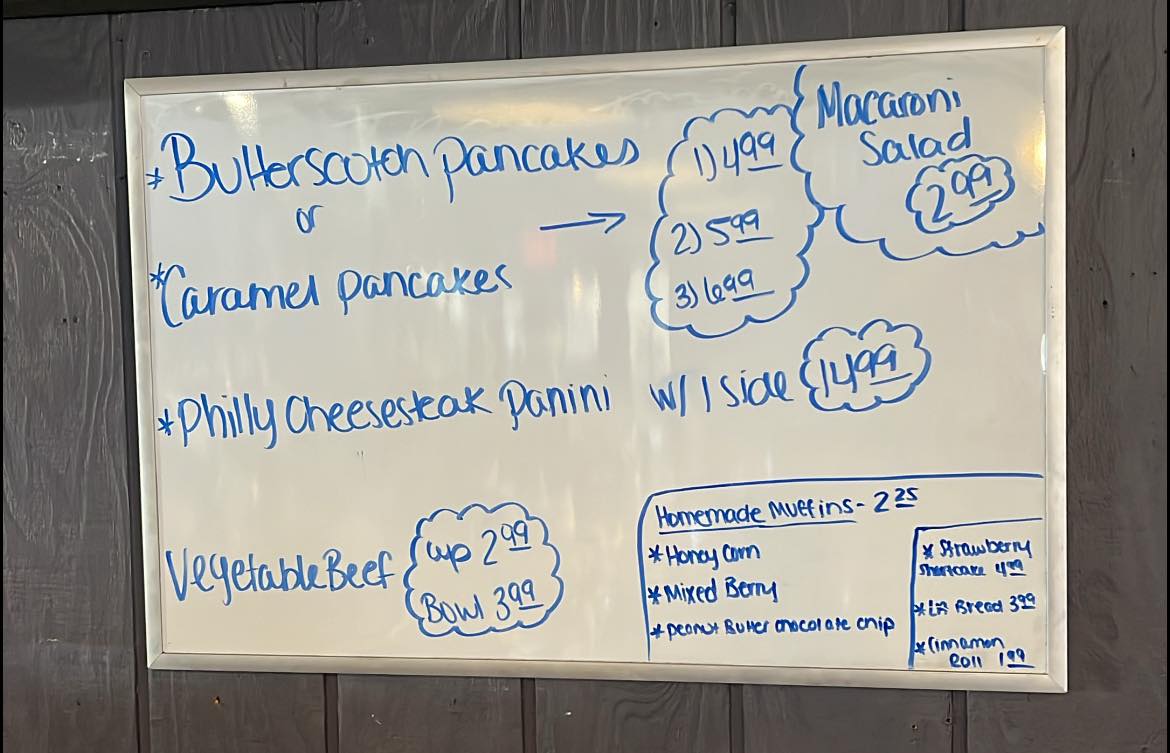 *Butterscotch Pancakes
or
*Caramel Pancakes
→
1) 4 99
2) 5 99
3) 6 99
Macaroni
Salad
2 99
*Philly Cheesesteak Panini w/ 1 side 14 99
Vegetable Beef
Cup 2 99
Bowl 3 99
Homemade Muffins - 2 25
*Honey Corn
*Mixed Berry
*Peanut Butter chocolate chip
*Strawberry
Shortcake 4 99
* Bread 3 99
*Cinnamon
Roll 1 99